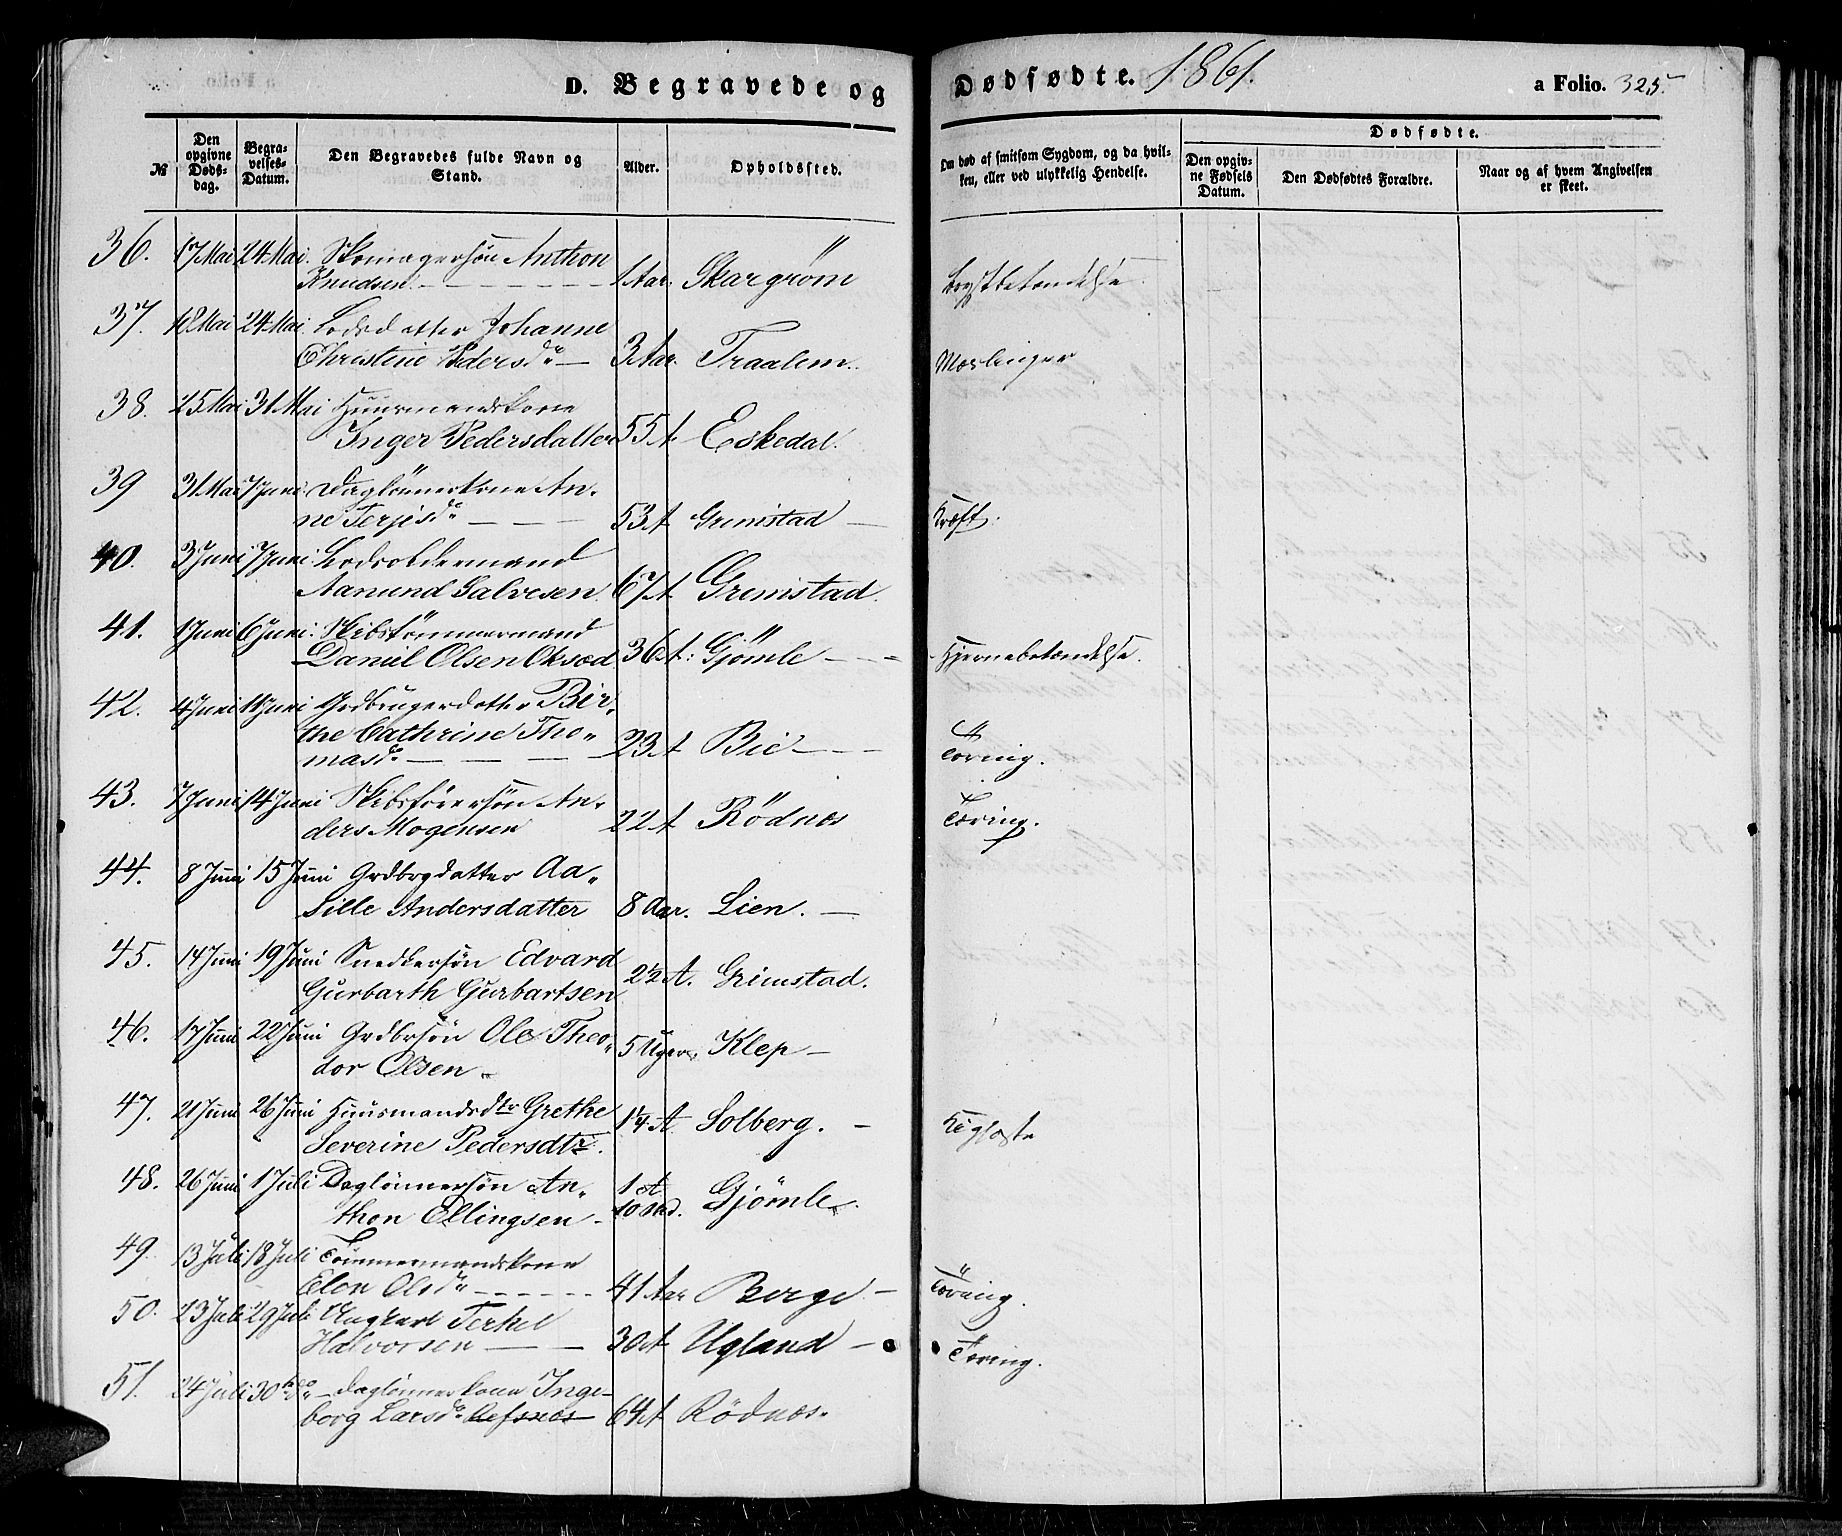 D. Begravede og Dødfødte. 1861. a Folio. 325
No
Den opgivne Dødsdag.
Begravelses-Datum.
Den Begravedes fulde Navn og Stand.
Alder.
Opholdssted.
Om død af smitsom Sygdom, og da hvilken, eller ved ulykkelig Hendelse.
Dødfødte.
Den opgivne Fødsels Datum.
Den Dødfødtes Forældre.
Naar og af hvem Angivelsen er skeet.
36. 17 Mai 24 Mai. Skomagersøn Anthon
Knudsen 1 Aar. Skargrøm Brystbetændelse
37. 18 Mai 24 Mai Lodsdatter Johanne
Christine Pedersdr 3 Aar. Traalem. Mæslinger
38. 25 Mai 31 Mai Huusmandskone
Inger Pedersdatter 55 A Eskedal.
39 31 Mai 7 Juni Daglönnerkone An-
ne Terjesdr 53 A Grimstad Kræft.
40. 3 Juni 7 Juni Lodsoldermand
Aanund Salvesen 67 A Grimstad.
41. 1 Juni 6 Juni. Skibstömmermand
Daniel Olsen Oksed 36 A: Gjömle Hjernebetændelse.
42. 4 Juni 11 Juni Grdbrugerdatter Bir-
the Cathrine Tho-
masdr 23 A Bie Tæring.
43. 7 Juni 14 Juni Skibsförersön An-
ders Mogensen 22 A Rödnæs Tæring.
44. 8 Juni 15 Juni Grdbrgdatter Aa-
sille Andersdatter 8 Aar. Lien.
45. 14 Juni 19 Juni Snedkersön Edvard
Gurbarth Gurbartsen 2½ A. Grimstad.
46. 17 Juni 22 Juni Grdbrsön Ole Theo-
dor Olsen 5 Uger Klep
47. 21 Juni 26 Juni Huusmandsdtr Grethe
Severine Pedersdtr. 1¼ A Solberg. Kighoste
48. 26 Juni 1 Juli Daglönnersön An-
thon Ellingsen 1 A 10 Md. Gjömle
49. 13 Juli 18 Juli Tömmermandskone
Elen Olsdr 41 Aar Berge Tæring.
50. 23 Juli 29 Juli Ungkarl Terkel
Halvorsen 30 A Ugland Tæring.
51. 24 Juli 30 Daglönnerkone Inge-
borg Larsdr 64 A Rödnæs